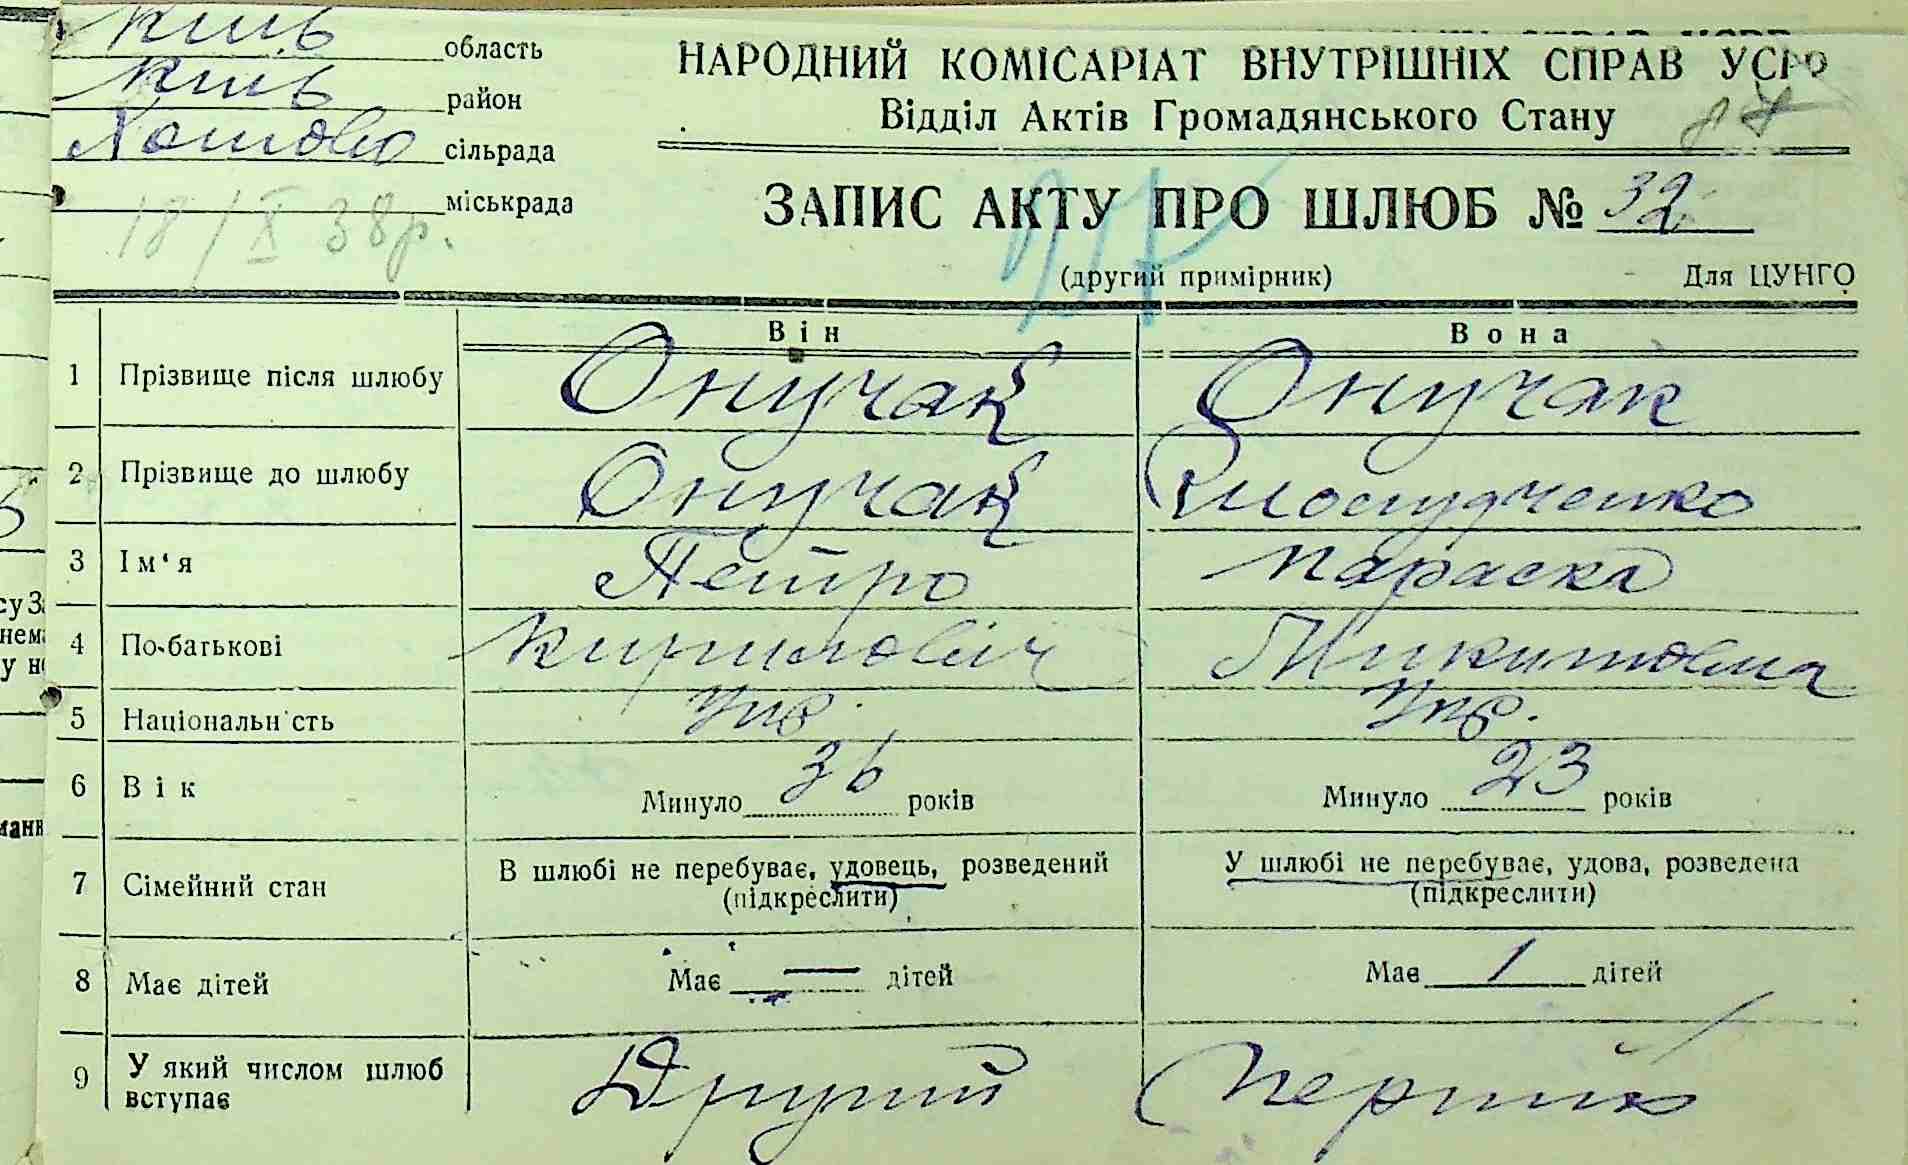 Київ область
Київ район
Хотово сільрада
міськрада
18/X 38р.
НАРОДНИЙ КОМІСАРІАТ ВНУТРІШНІХ СПРАВ УСРР
Відділ Актів Громадянського Стану
ЗАПИС АКТУ ПРО ШЛЮБ № 32
(другий примірник) Для ЦУНГО
Він Вона
1 Прізвище після шлюбу Онучак Онучак
2 Прізвище до шлюбу Онучак
3 Ім‘я Петро Параска
4 По-батькові Кирилович Микитовна
5 Національність Укр. Укр.
6 Вік Минуло 36 років Минуло 23 років
7 Сімейний стан В шлюбі не перебуває, удовець, розведений У шлюбі не перебуває, удова, розведена
(підкреслити) (підкреслити)
8 Має дітей Має — дітей Має 1 дітей
9 У який числом шлюб Другий Перший
вступає